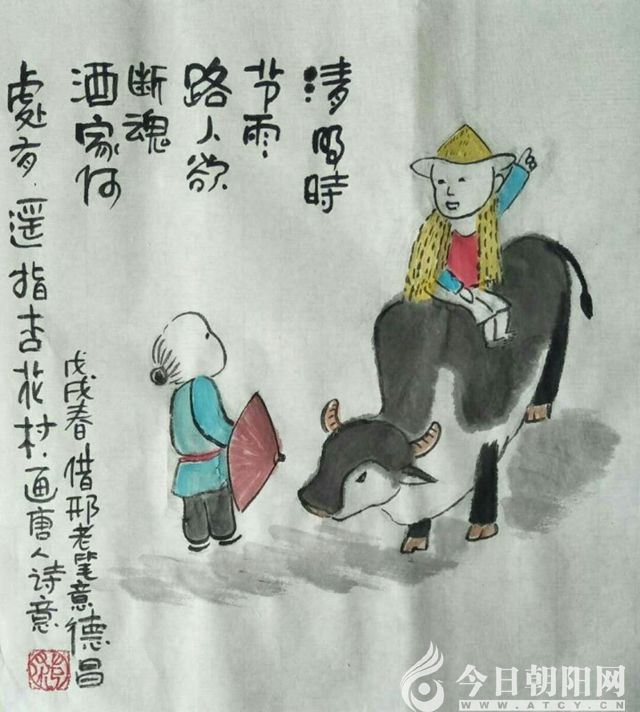 清明時
节雨
路人欲
断魂
酒家何
處有.遥指杏花村.画唐人诗意
戊戌春借邢老笔意德昌
今日朝阳网
WWW.ATCY.CN